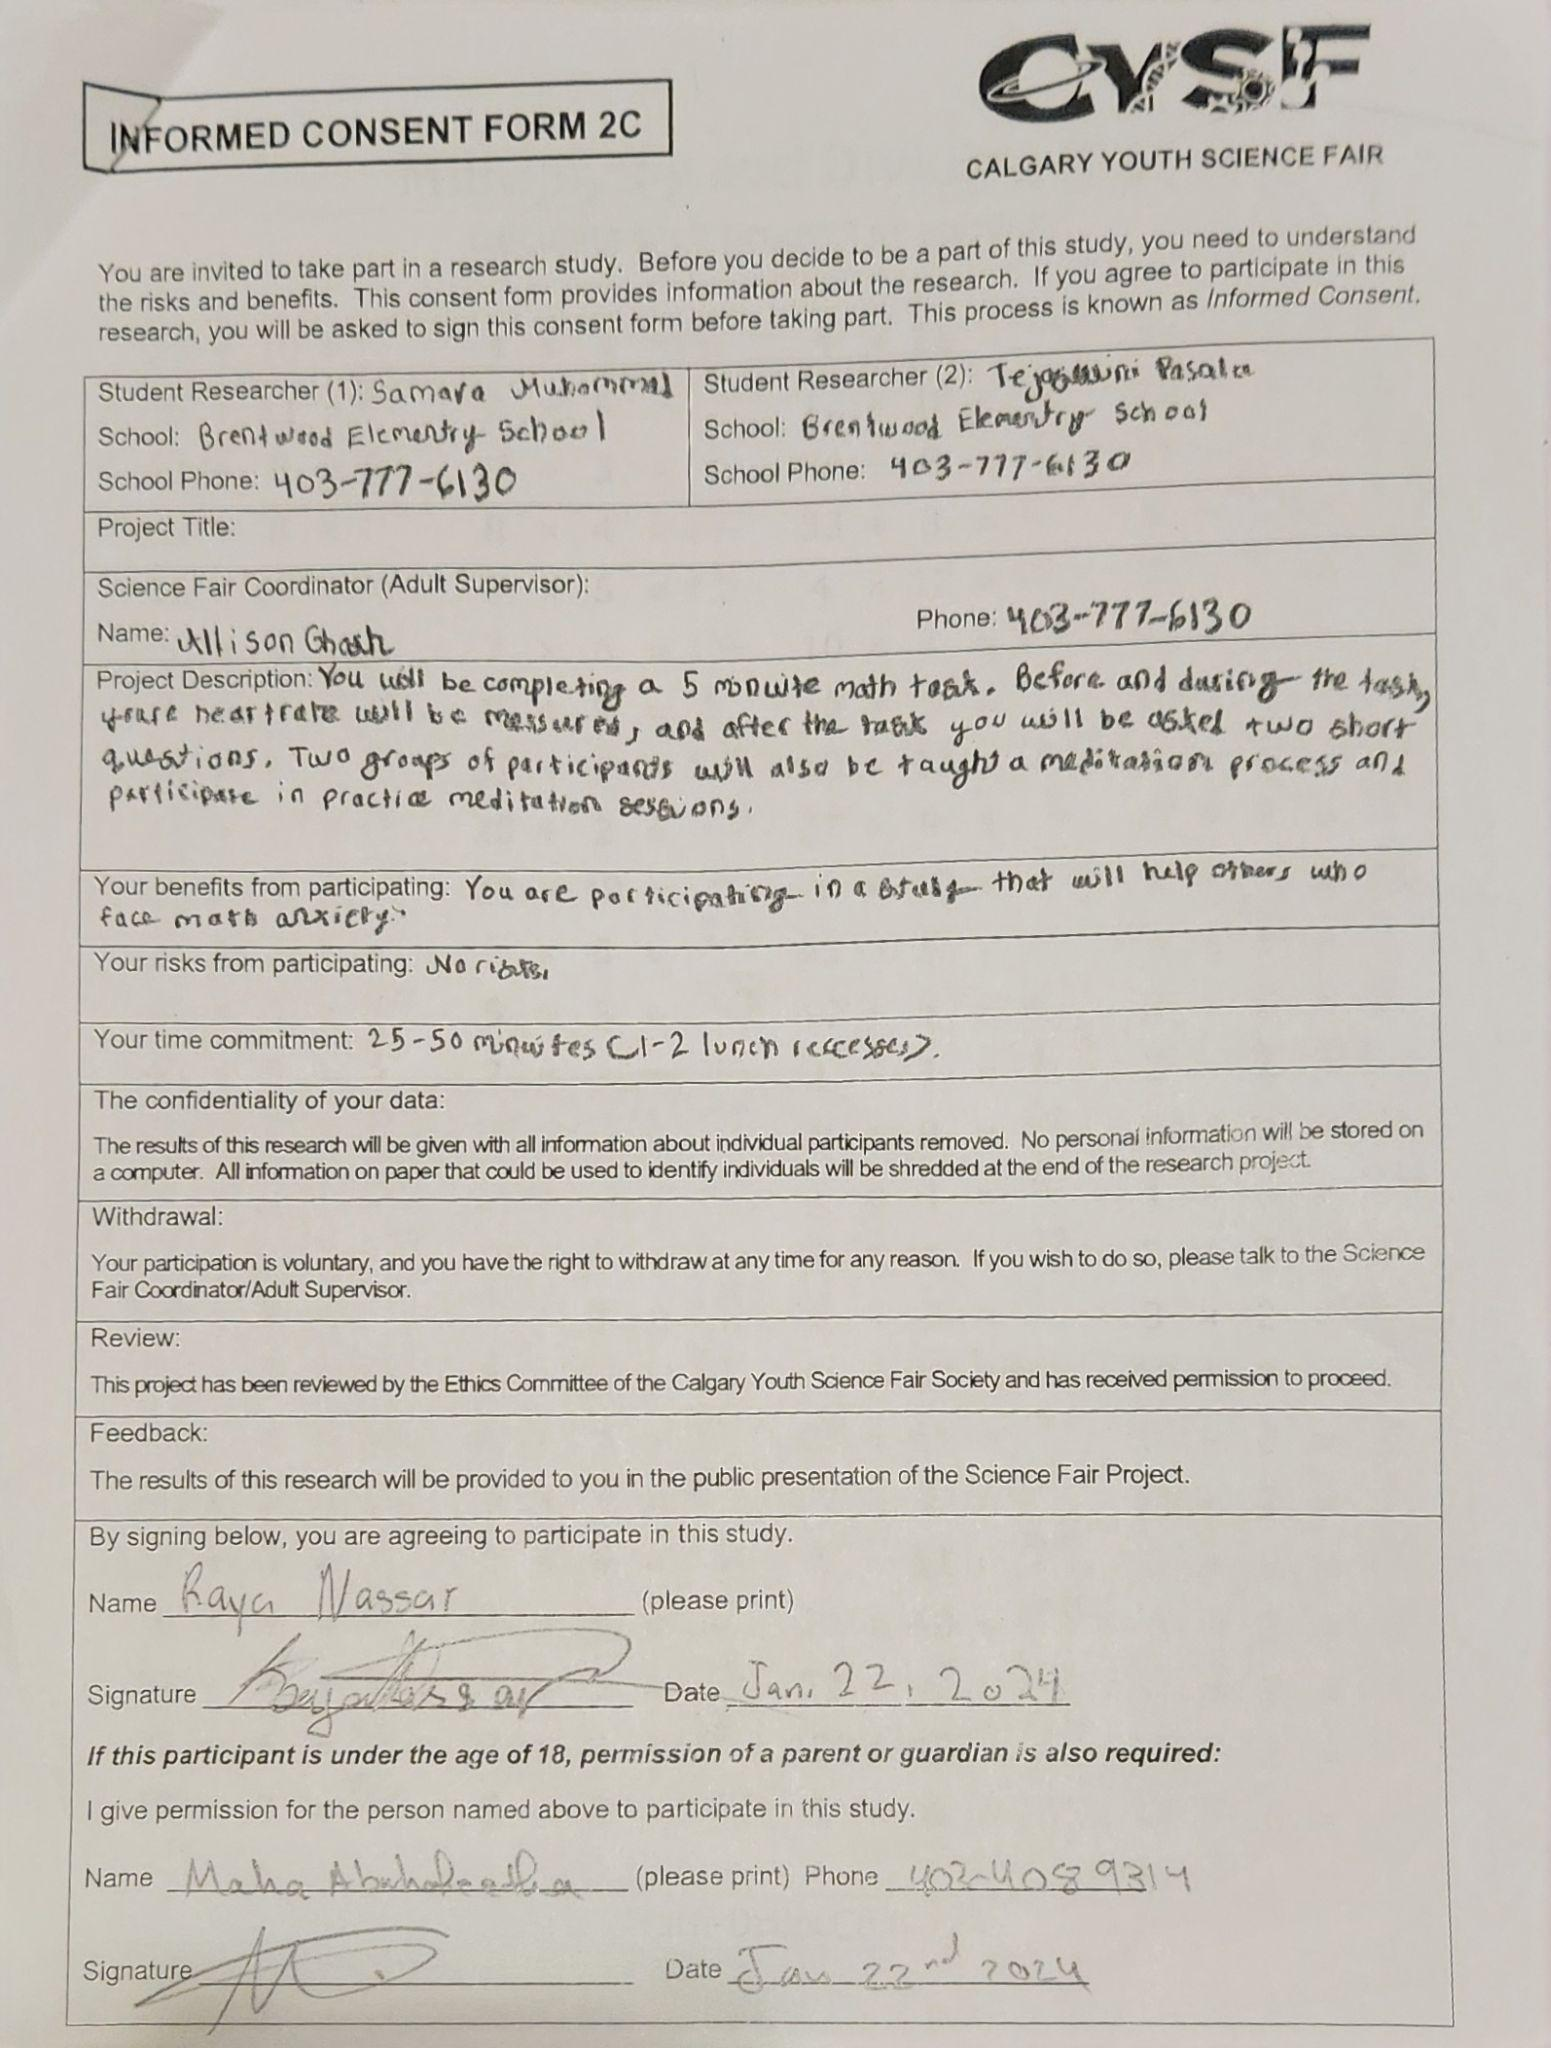 INFORMED CONSENT FORM 2C
CYSF
CALGARY YOUTH SCIENCE FAIR
You are invited to take part in a research study. Before you decide to be a part of this study, you need to understand
the risks and benefits. This consent form provides information about the research. If you agree to participate in this
research, you will be asked to sign this consent form before taking part. This process is known as Informed Consent.
Student Researcher (1): Samara Muhammad
School: Brentwood Elementry School
School Phone: 403-777-6130
Student Researcher (2): Pasala
School: Brentwood Elementry School
School Phone: 403-777-6130
Project Title:
Science Fair Coordinator (Adult Supervisor):
Name: Allison Ghosh
Phone: 403-777-6130
Project Description: You will be completing a 5 minute math task. Before and during the task,
heartrate will be messured, and after the task you will be asked two short
questions. Two groups of participants will also be taught a meditation process and
participate in practice meditation sessions.
Your benefits from participating: You are participating in a study that will help others who
face math anxiety.
Your risks from participating: No risks.
Your time commitment: 25-50 minutes (1-2 lunch reccesses).
The confidentiality of your data:
The results of this research will be given with all information about individual participants removed. No personal information will be stored on
a computer. All information on paper that could be used to identify individuals will be shredded at the end of the research project.
Withdrawal:
Your participation is voluntary, and you have the right to withdraw at any time for any reason. If you wish to do so, please talk to the Science
Fair Coordinator/Adult Supervisor.
Review:
This project has been reviewed by the Ethics Committee of the Calgary Youth Science Fair Society and has received permission to proceed.
Feedback:
The results of this research will be provided to you in the public presentation of the Science Fair Project.
By signing below, you are agreeing to participate in this study.
Name Raya Nassar (please print)
Signature Raya Nassar Date Jan. 22, 2024
If this participant is under the age of 18, permission of a parent or guardian is also required:
I give permission for the person named above to participate in this study.
Name Maha (please print) Phone 403-4089314
Signature Date Jan 22nd 2024